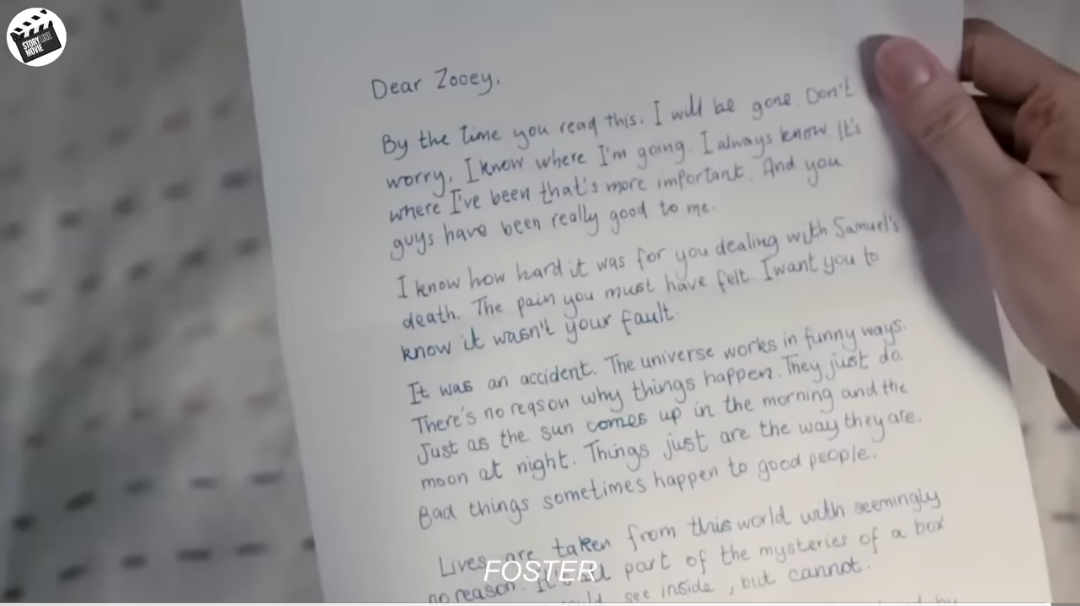 STORY
MOVIE
Dear Zooey,
By the time you read this. I will be gone. Don't
worry, I know where I'm going. I always know. It's
where I've been that's more important. And you
guys have been really good to me.
I know how hard it was for you dealing with Samuel's
death. The pain you must have felt. I want you to
know it wasn't your fault.
It was an accident. The universe works in funny ways.
There's no reason why things happen. They just do.
Just as the sun comes up in the morning and the
moon at night. Things just are the way they are.
Bad things sometimes happen to good people.
Lives are taken from this world with seemingly
no reason. It's part of the mysteries of a box
see inside, but cannot.
FOSTER